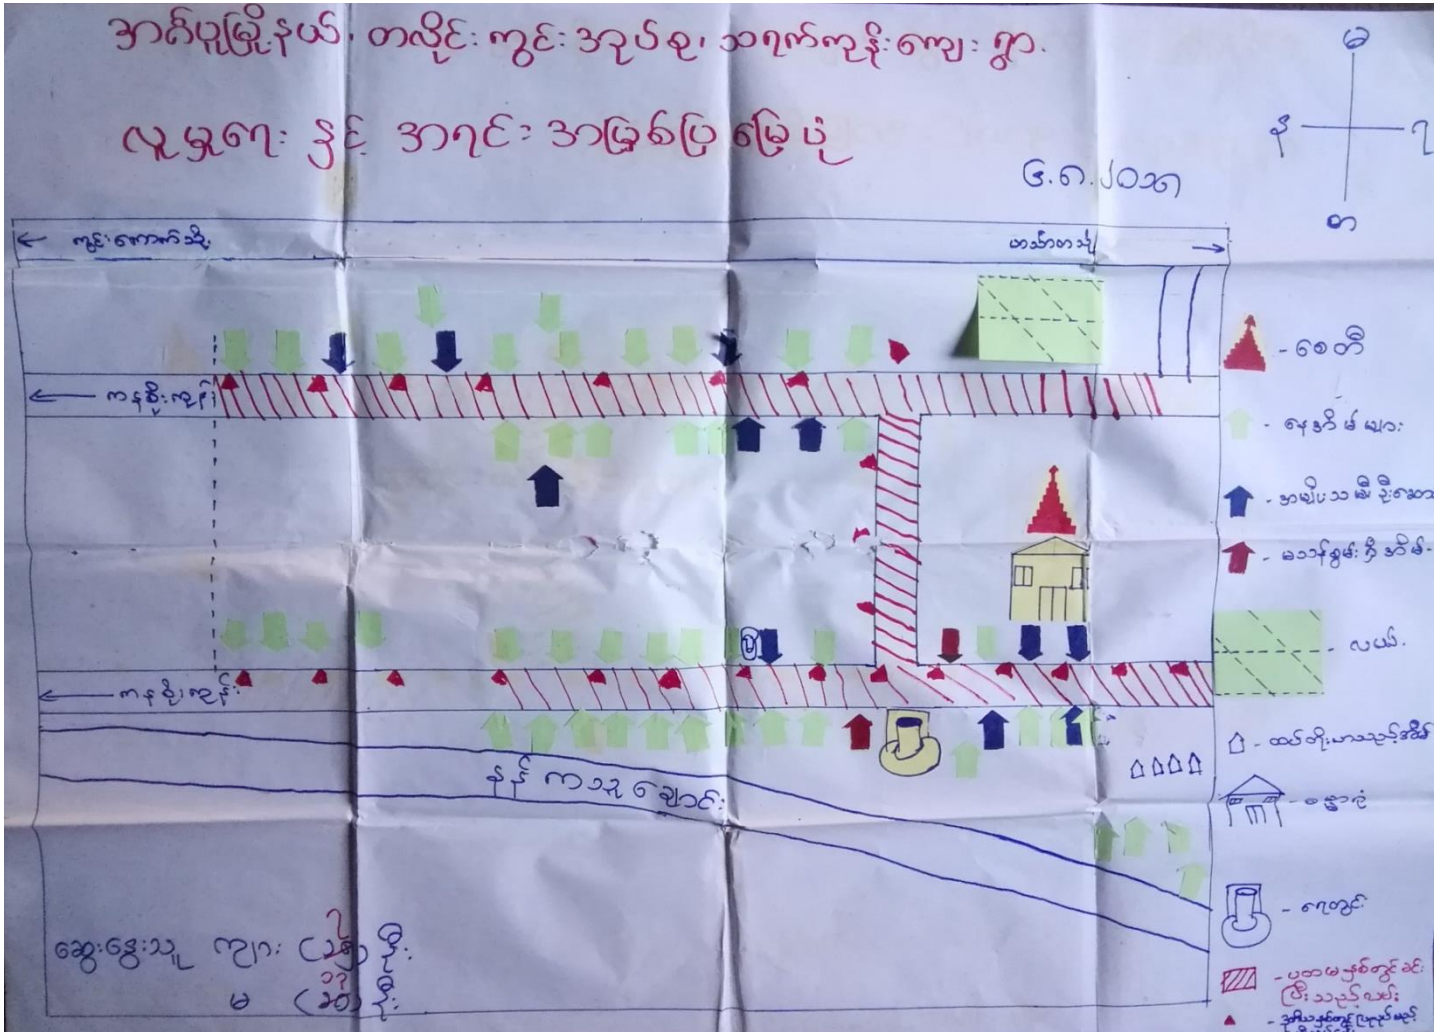 အင်္ဂပူမြို့နယ်၊ တလိုင်းကွင်းအုပ်စု၊ သရက်ကုန်းကျေးရွာ.
လူမှုရေး နှင့် အရင်းအမြစ်ပြမြေပုံ
၆.၈.၂၀၁၈
မ
န
ရ
တ
ကွင်းကောက်သို့
ဟင်္သာတသို့
ကနစိုးကုန်း
ကနစိုးကုန်း
နန်ကသူချောင်း
- စေတီ
- နေအိမ်များ
- အမျိုးသမီးဦးဆော
- မသန်စွမ်းရှိအိမ်.
- လယ်.
- ထပ်တိုးလာသည့်အိမ်
- ဓမ္မာရုံ
- ရေတွင်း
- ပထမနှစ်တွင်ခင်း
ပြီးသည့်လမ်း
ဆွေးနွေးသူ ကျား ( ) ဦး
မ ( ) ဦး